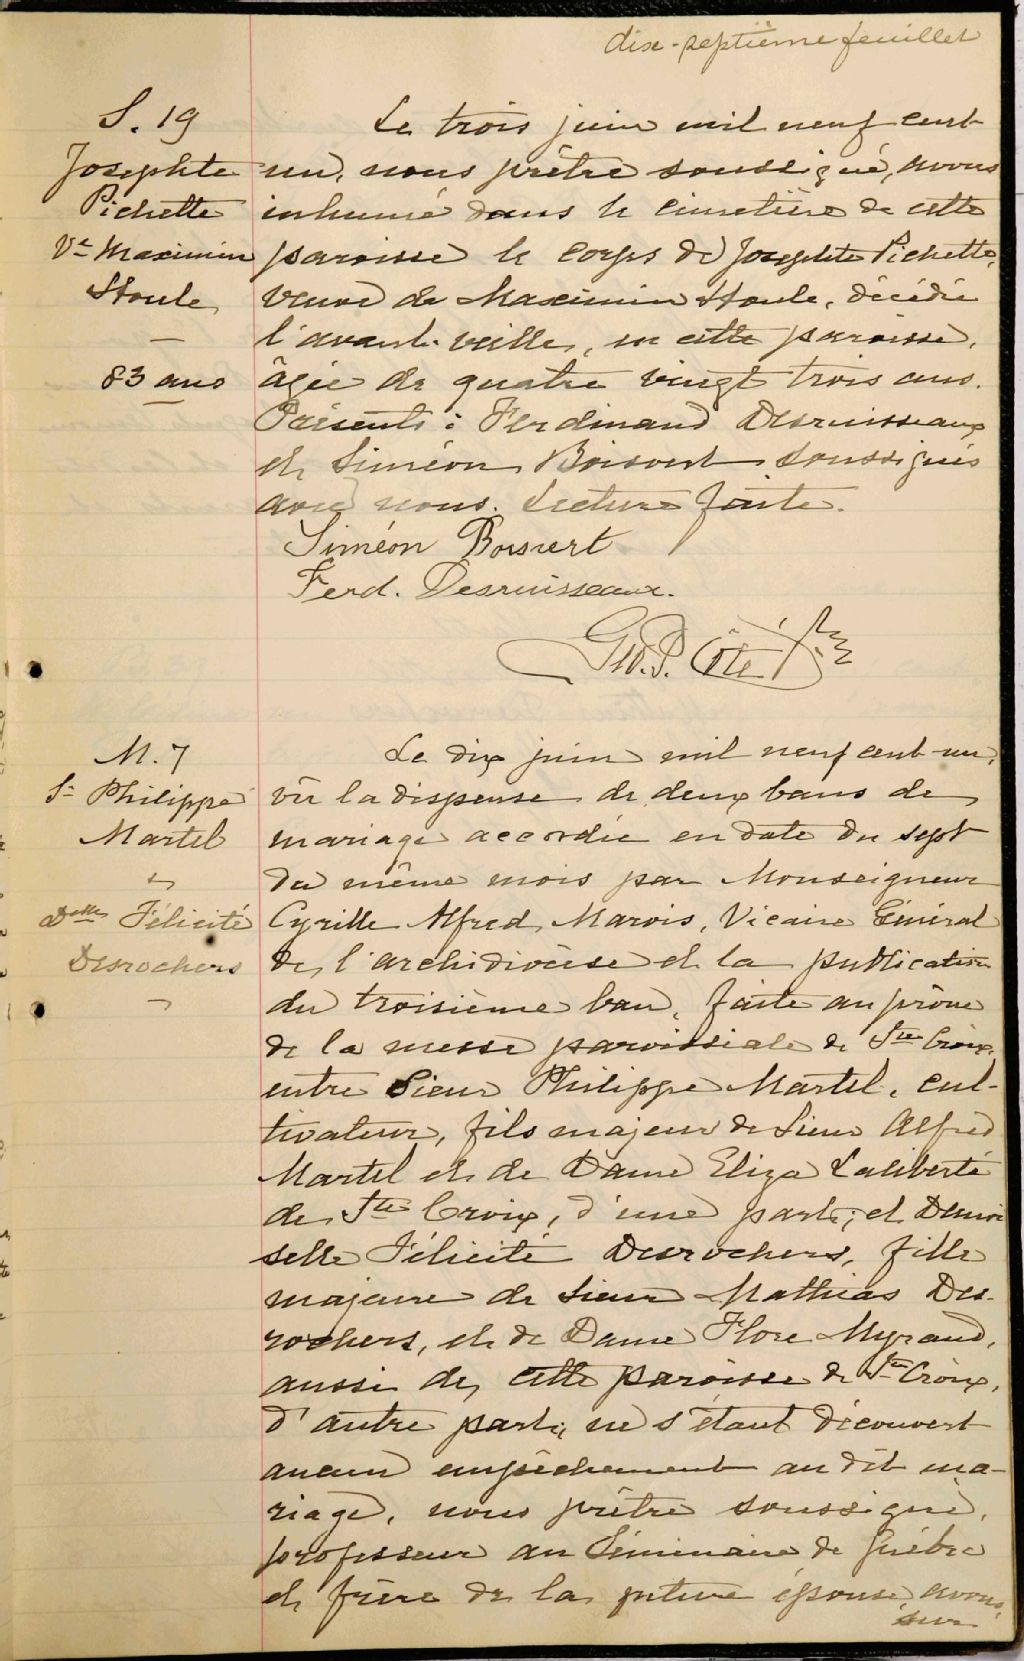 dix-septième feuillet
S. 19
Josephte
Pichette
Ve Maximin
Houle
83 ans
Le trois juin mil neuf cent
un, nous prêtre soussigné, avons
inhumé dans le cimetière de cette
paroisse le corps de Josephte Pichette,
veuve de Maximin Houle, décédée
l'avant-veille, en cette paroisse,
âgée de quatre vingt trois ans.
Présents : Ferdinand Desruisseaux
et Siméon Boisvert soussignés
avec nous. Lecture faite.
Siméon Boisvert
Ferd. Desruisseaux.
Geo. P. Côté Ptre
M. 7
Sr Philippe
Martel
&
Delle Félicité
Desrochers
Le dix juin mil neuf cent-un,
vû la dispense de deux bans de
mariage accordée en date du sept
du même mois par Monseigneur
Cyrille Alfred Marois, Vicaire Général
de l'archidiocèse et la publication
du troisième ban, faite au prône
de la messe paroissiale de Ste Croix,
entre Sieur Philippe Martel, cul-
tivateur, fils majeur de Sieur Alfred
Martel et de Dame Eliza Laliberté
de Ste Croix, d'une part; et Demoi
selle Félicité Desrochers, fille
majeure de Sieur Mathias Des-
rochers, et de Dame Flore Myrand,
aussi de cette paroisse de Ste Croix,
d'autre part; ne s'étant découvert
aucun empêchement au dit ma-
riage, nous prêtre soussigné,
professeur au Séminaire de Québec
et frère de la future épouse, avons,
sur